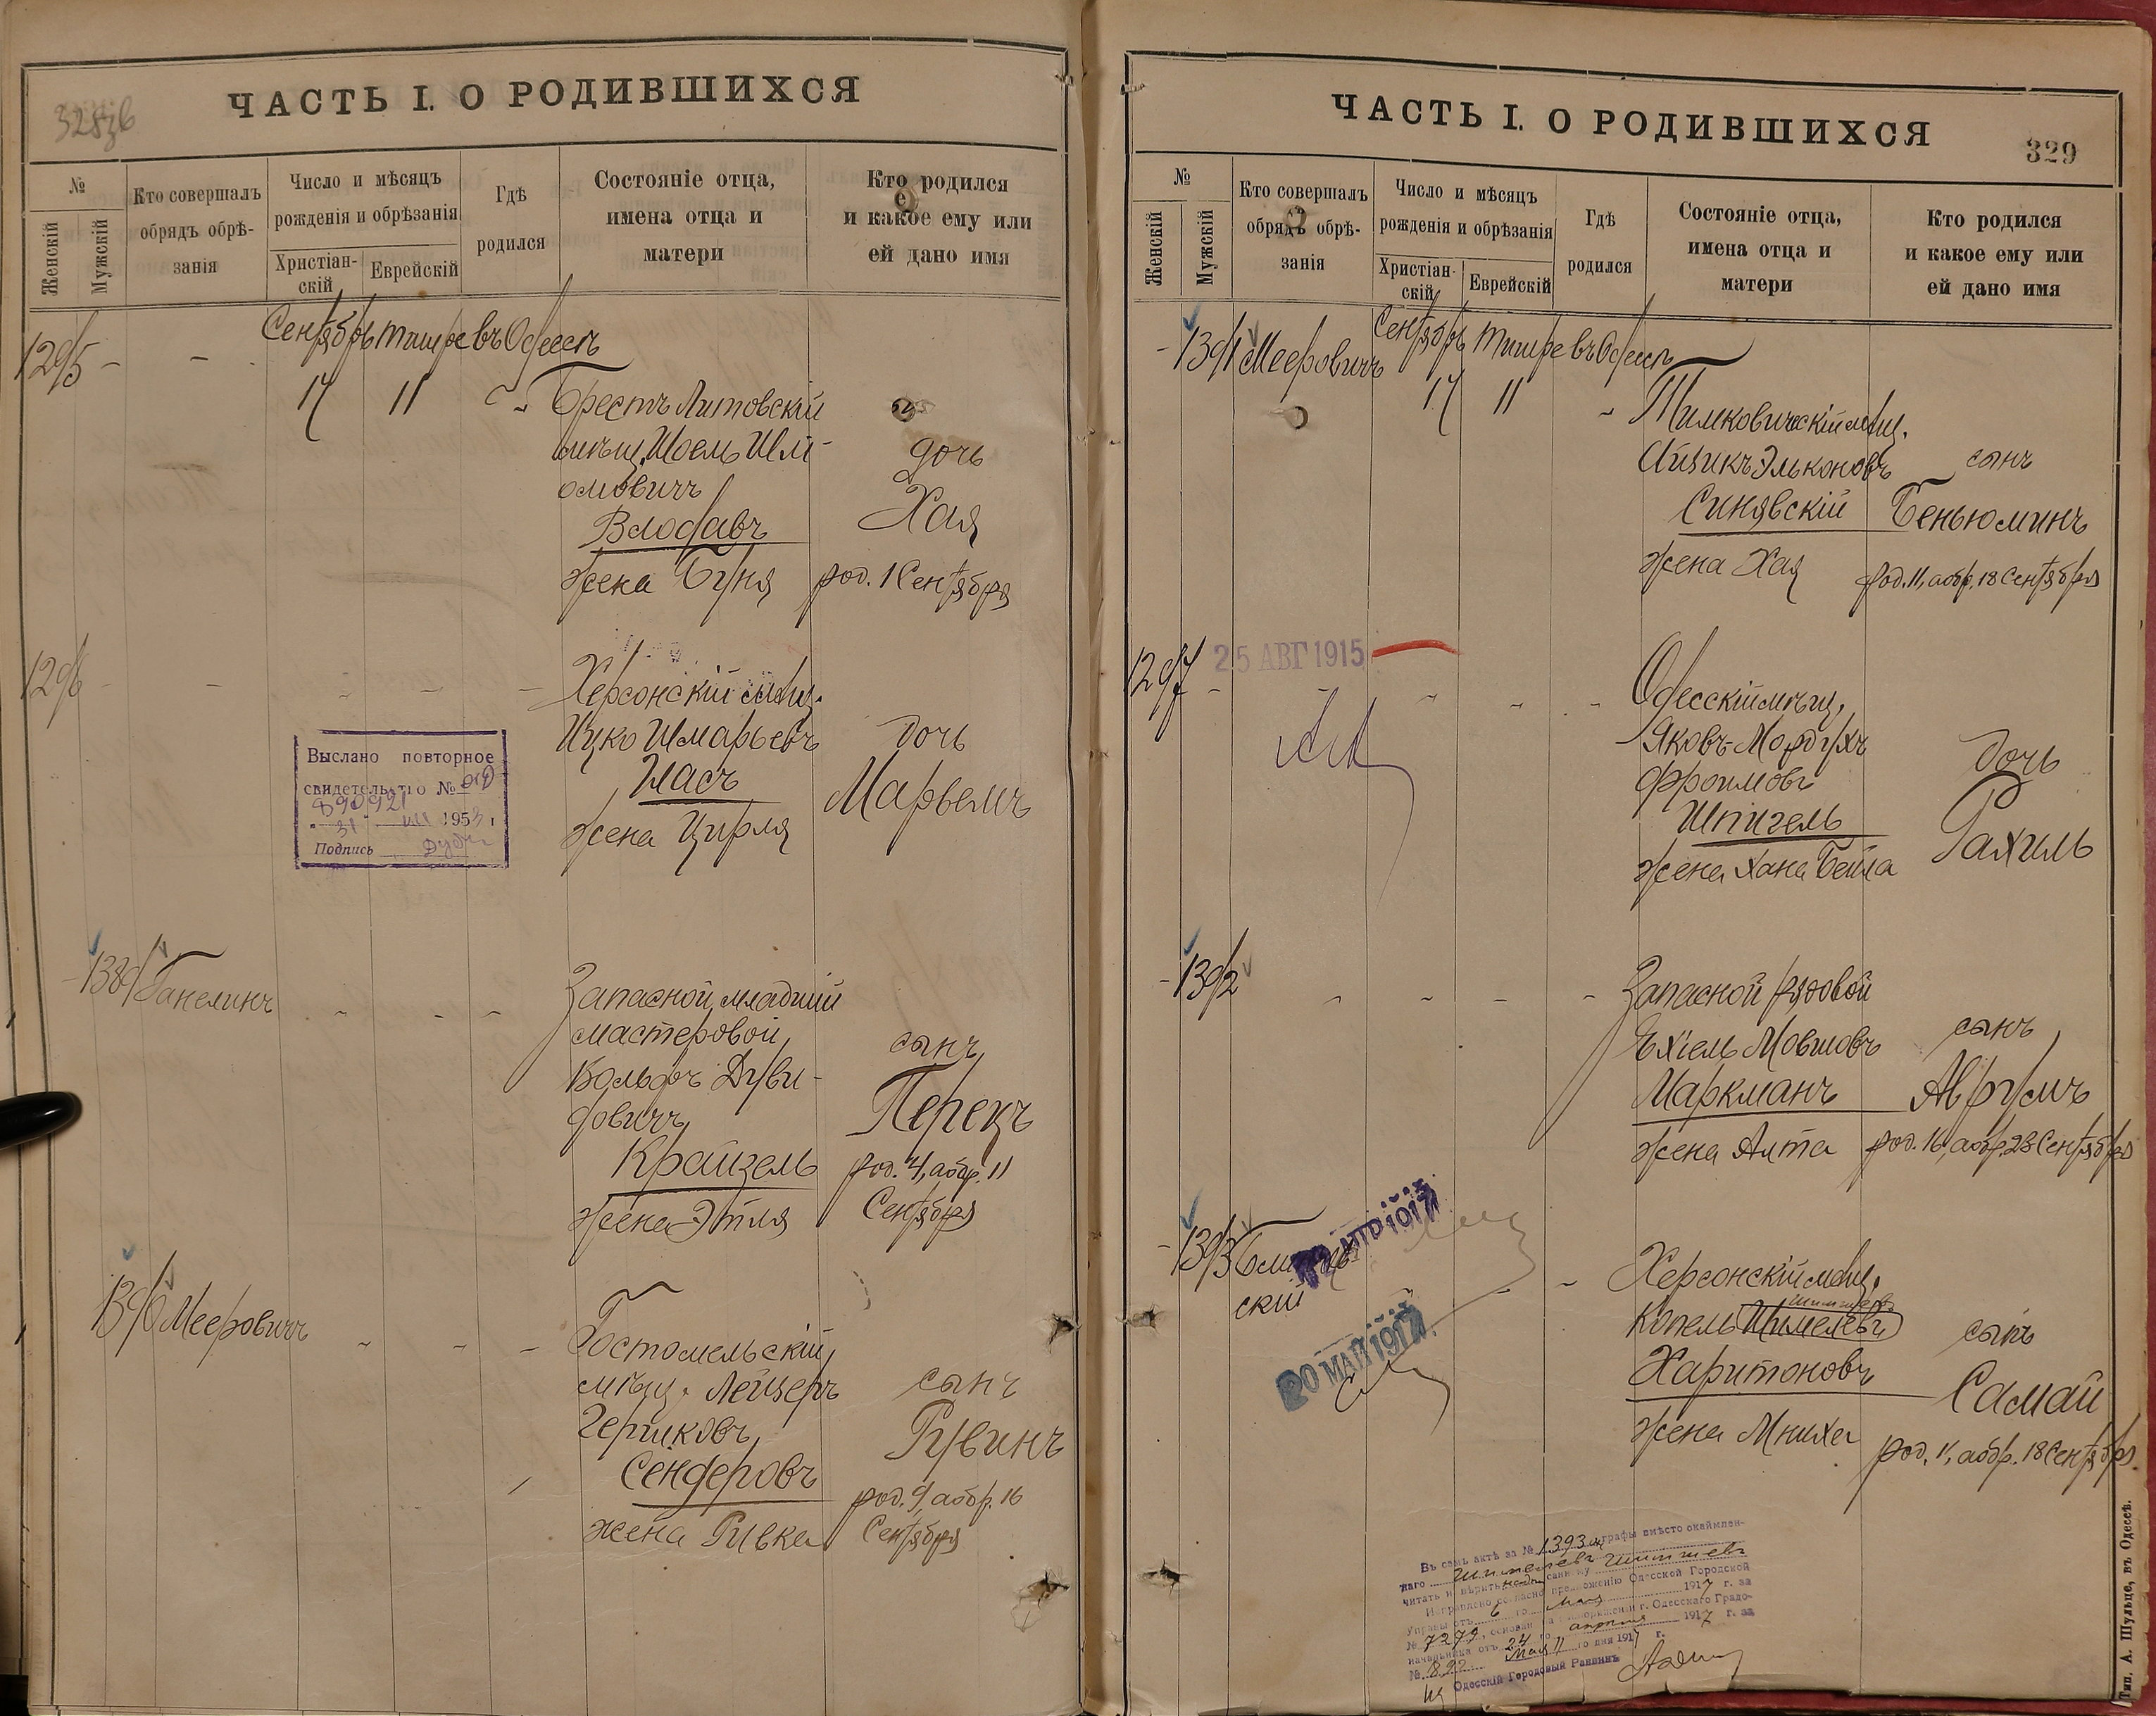 328
ЧАСТЬ I. О РОДИВШИХСЯ
№
Женскій
Мужскій
Кто совершалъ
обрядъ обрѣ-
занія
Число и мѣсяцъ
рожденія и обрѣзанія
Христіан-
скій
Еврейскій
Гдѣ
родился
Состояніе отца,
имена отца и
матери
Кто родился
и какое ему или
ей дано имя
Сентябрь Тишре въ Одессѣ
1295 - -
17 11
Брестъ Литовскій
мѣщ. Шоель Шлі-
омовичъ
Влодавъ
жена Буня
дочь
Хая
род. 1 Сентября
1296 - -
Херсонскій мѣщ.
Ицко Шмарьевъ
Часъ
жена Цирля
дочь
Марьемъ
Выслано повторное
свидетельство №
31 VIII 1953 г
Подпись
1389 Ганелинъ
Запасной младшій
мастеровой
Вольфъ Дуви-
довичъ
Крайзель
жена Этля
сынъ
Перецъ
род. 4, аобр. 11
Сентября
1390 Мееровичъ
Гостомельскій
мѣщ. Лейзеръ
Гершковъ
Сендеровъ
жена Ривка
сынъ
Рувинъ
род. 9, аобр. 16
Сентября
ЧАСТЬ I. О РОДИВШИХСЯ
329
№
Женскій
Мужскій
Кто совершалъ
обрядъ обрѣ-
занія
Число и мѣсяцъ
рожденія и обрѣзанія
Христіан-
скій
Еврейскій
Гдѣ
родился
Состояніе отца,
имена отца и
матери
Кто родился
и какое ему или
ей дано имя
Сентябрь Тишре въ Одессѣ
- 1391 Мееровичъ
17 11
Тимковичскій мѣщ.
Айзикъ Эльконовъ
Синявскій
жена Хая
сынъ
Беньюминъ
род. 11, аобр. 18 Сентября
25 АВГ 1915
1297 -
Одесскій мѣщ.
Яковъ-Мордухъ
Фроимовъ
Шпигель
жена Хана Бейла
дочь
Рахиль
- 1392
Запасной рядовой
Ехіель Мовшовъ
Маркманъ
жена Алта
сынъ
Аврумъ
род. 16, аобр. 23 Сентября
- 1393
скій
1917
20 МАЙ 1917
Херсонскій мѣщ.
Копель Шмелевъ
Харитоновъ
жена Мниха
сынъ
Самай
род. 11, аобр. 18 Сентября
Въ семъ актѣ за № 1393 м графы вмѣсто окаймлен-
наго
читать и вѣрить
Исправлено согласно предложенію Одесской Городской
Управы отъ 6 го Мая 1917 г. за
№ 7279, основан на
начальника отъ 24 го апрѣля 1917 г. за
№ 1892 Мая 11 го дня 1917 г.
Одесскій Городовый Раввинъ
Тип. А. Шульце, въ Одессѣ.